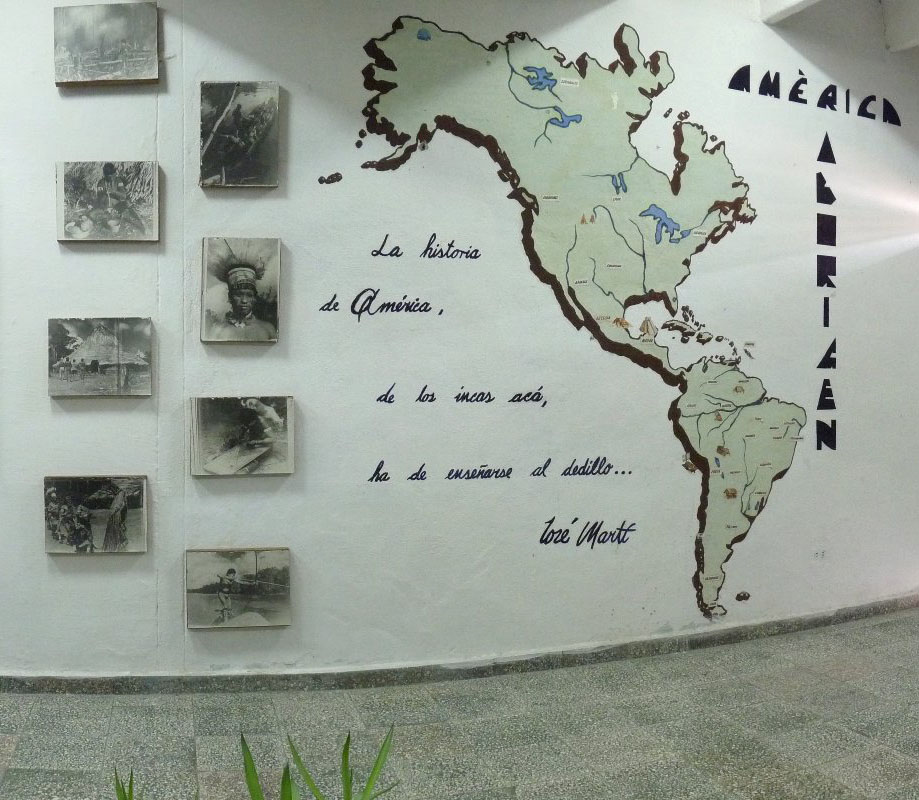 AMÈRICA
ABORIGEN
La historia
de América,
de los incas acá,
ha de enseñarse al dedillo...
José Martí